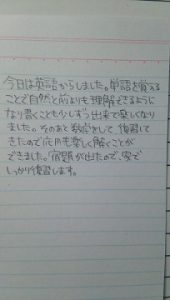 今日は英語からしました。単語を覚える
ことで自然と前よりも理解できるように
なり書くことも少しずつ出来て楽しくなり
ました。そのあと数学をして、復習して
きたので応用も楽しく解くことが
できました。宿題が出たので、家で
しっかり復習します。